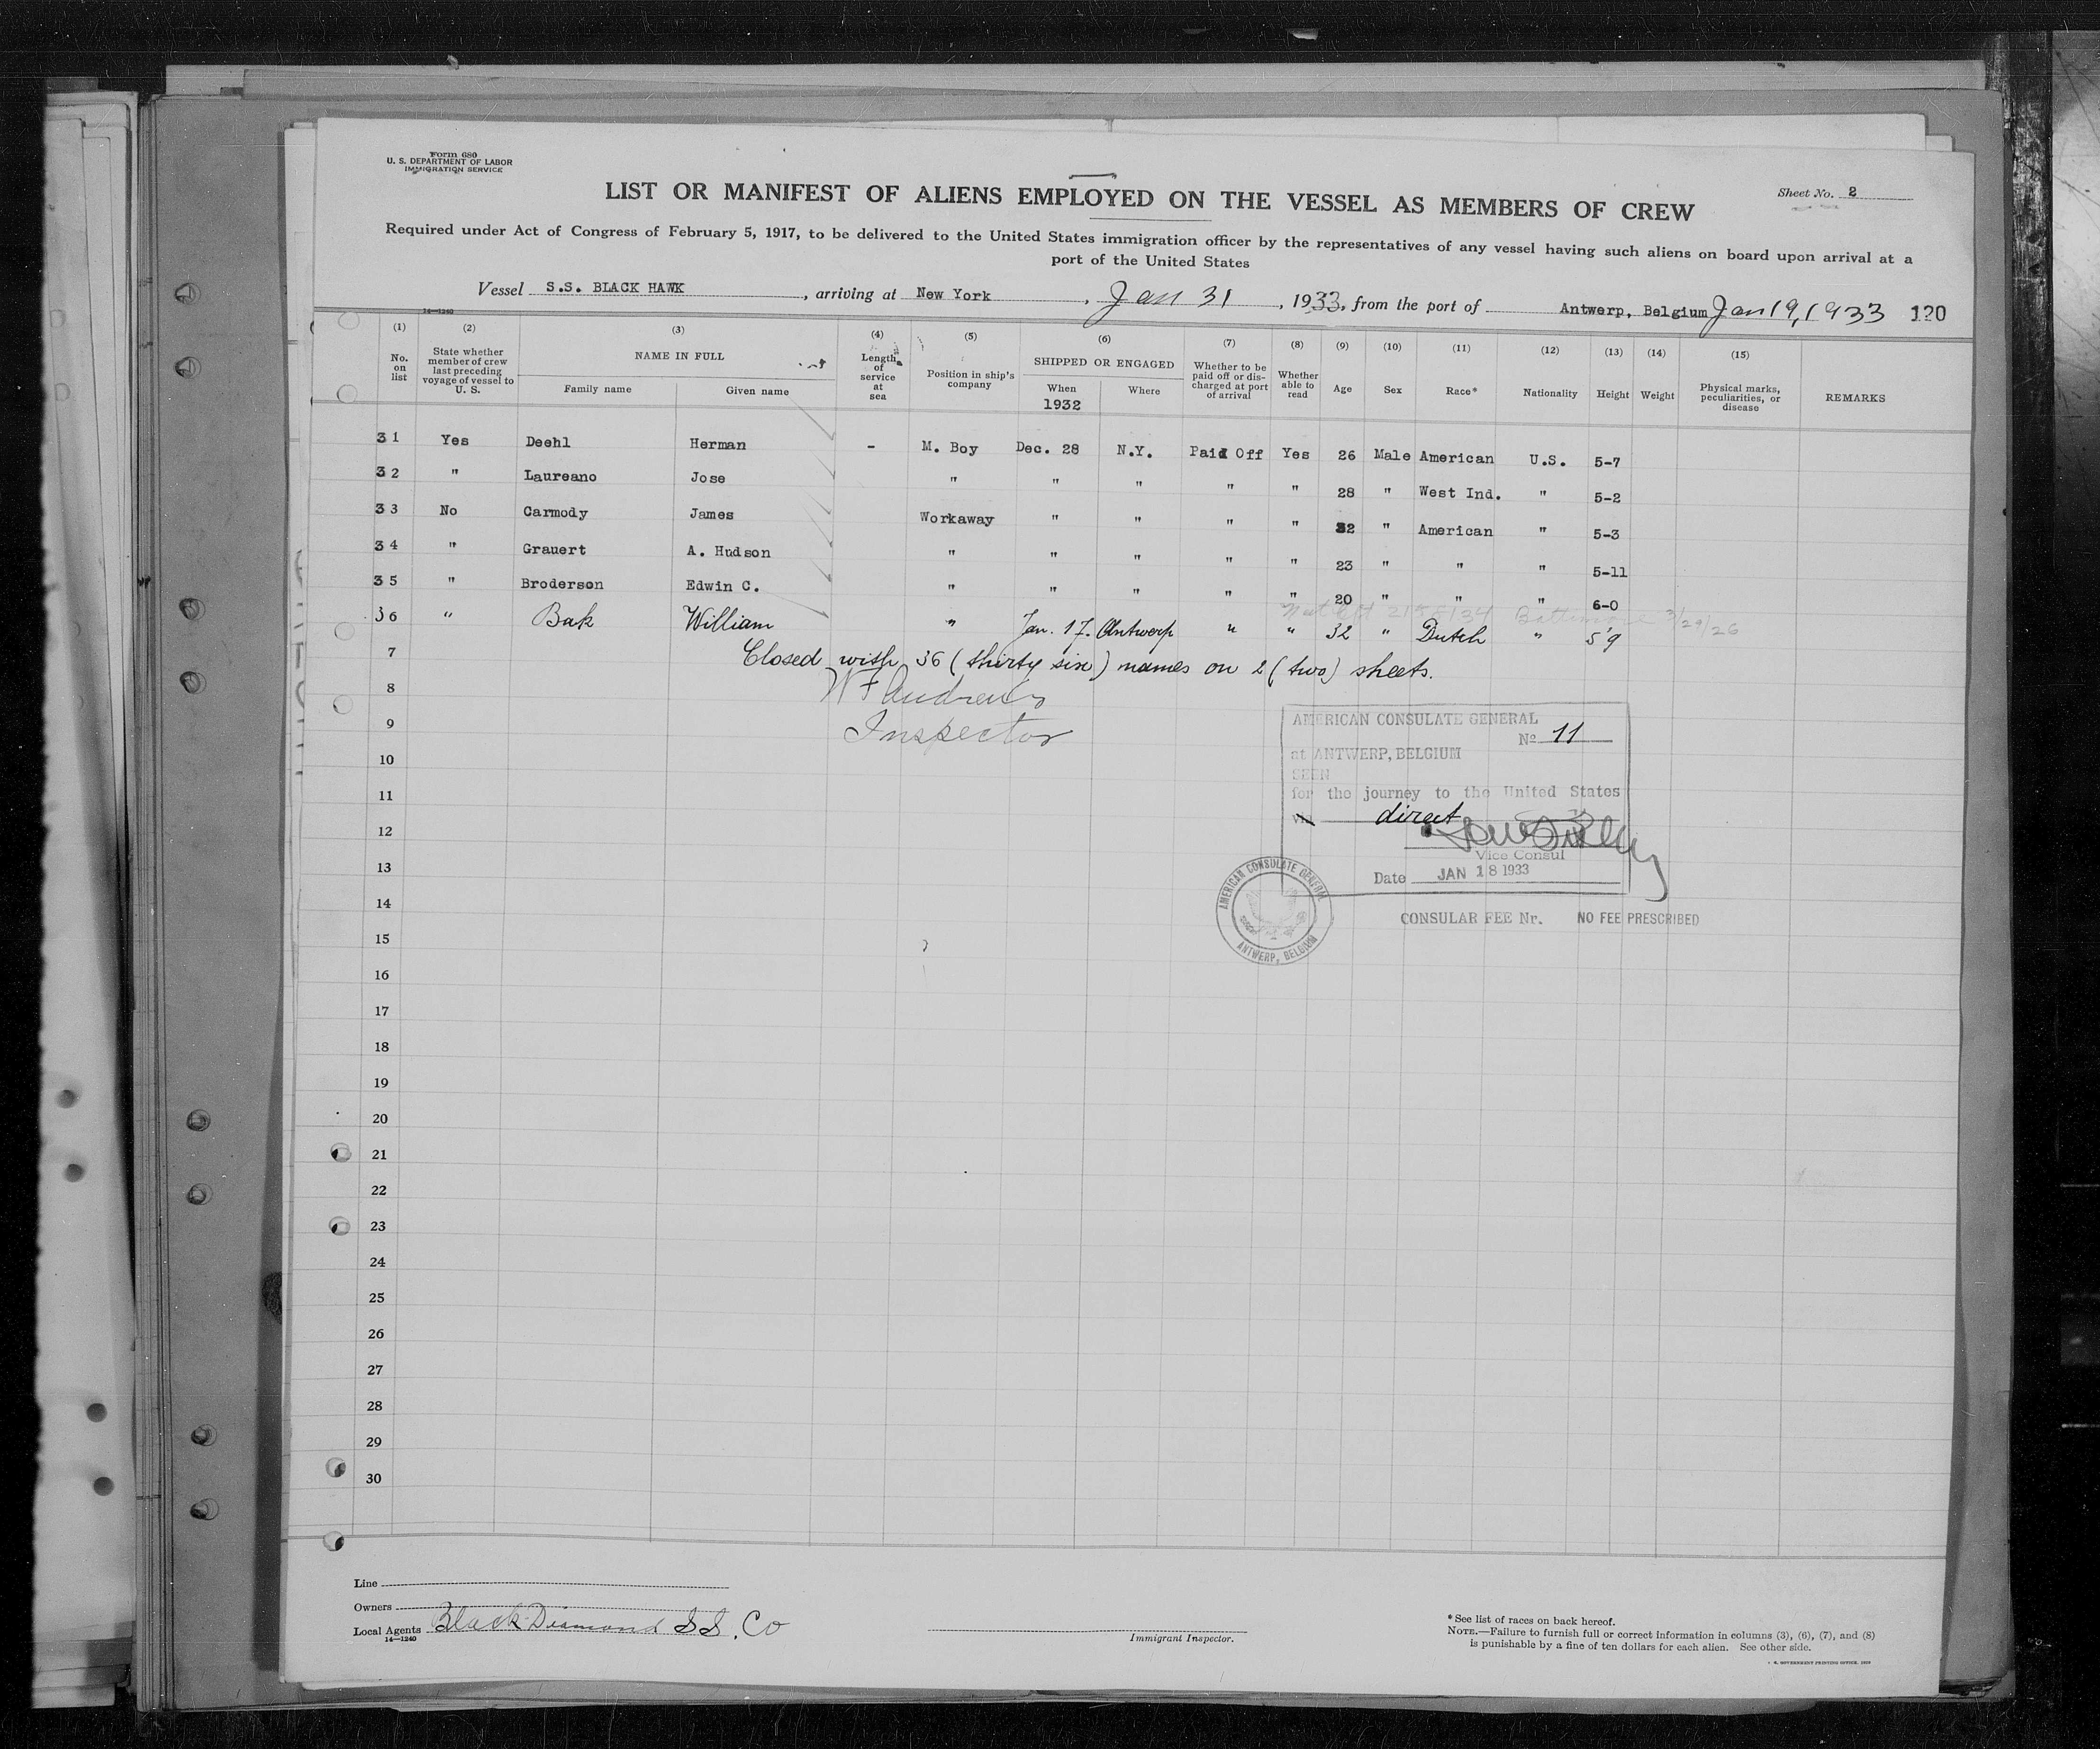 Form 680
U. S. DEPARTMENT OF LABOR
IMMIGRATION SERVICE
Sheet No. 2
LIST OR MANIFEST OF ALIENS EMPLOYED ON THE VESSEL AS MEMBERS OF CREW
Required under Act of Congress of February 5, 1917, to be delivered to the United States immigration officer by the representatives of any vessel having such aliens on board upon arrival at a
port of the United States
Vessel S.S. BLACK HAWK, arriving at New York, Jan 31, 1933, from the port of Antwerp, Belgium Jan 19, 1933 120
14—1240
(1) (2) (3) (4) (5) (6) (7) (8) (9) (10) (11) (12) (13) (14) (15)
No. on list State whether member of crew last preceding voyage of vessel to U. S. NAME IN FULL Family name Given name Length of service at sea Position in ship's company SHIPPED OR ENGAGED When 1932 Where Whether to be paid off or discharged at port of arrival Whether able to read Age Sex Race* Nationality Height Weight Physical marks, peculiarities, or disease REMARKS
31 Yes Deehl Herman - M. Boy Dec. 28 N.Y. Paid Off Yes 26 Male American U.S. 5-7
32 " Laureano Jose " " " " " 28 " West Ind. " 5-2
33 No Carmody James Workaway " " " " 32 " American " 5-3
34 " Grauert A. Hudson " " " " " 23 " " " 5-11
35 " Broderson Edwin C. " " " " " 20 " " " 6-0
Baltimore 3/29/26
36 " Bak William " Jan. 17. Antwerp " " 32 " Dutch " 5'9
7 Closed with 36 (thirty six) names on 2 (two) sheets.
8 W F Andrews
9 Inspector
10
11
12
13
14
15
16
17
18
19
20
21
22
23
24
25
26
27
28
29
30
AMERICAN CONSULATE GENERAL
No 11
at ANTWERP, BELGIUM
SEEN
for the journey to the United States
via direct
Vice Consul
Date JAN 18 1933
AMERICAN CONSULATE GENERAL
ANTWERP, BELGIUM
CONSULAR FEE Nr. NO FEE PRESCRIBED
Line
Owners
Local Agents Black Diamond S.S. Co
14—1240
Immigrant Inspector.
* See list of races on back hereof.
NOTE.—Failure to furnish full or correct information in columns (3), (6), (7), and (8)
is punishable by a fine of ten dollars for each alien. See other side.